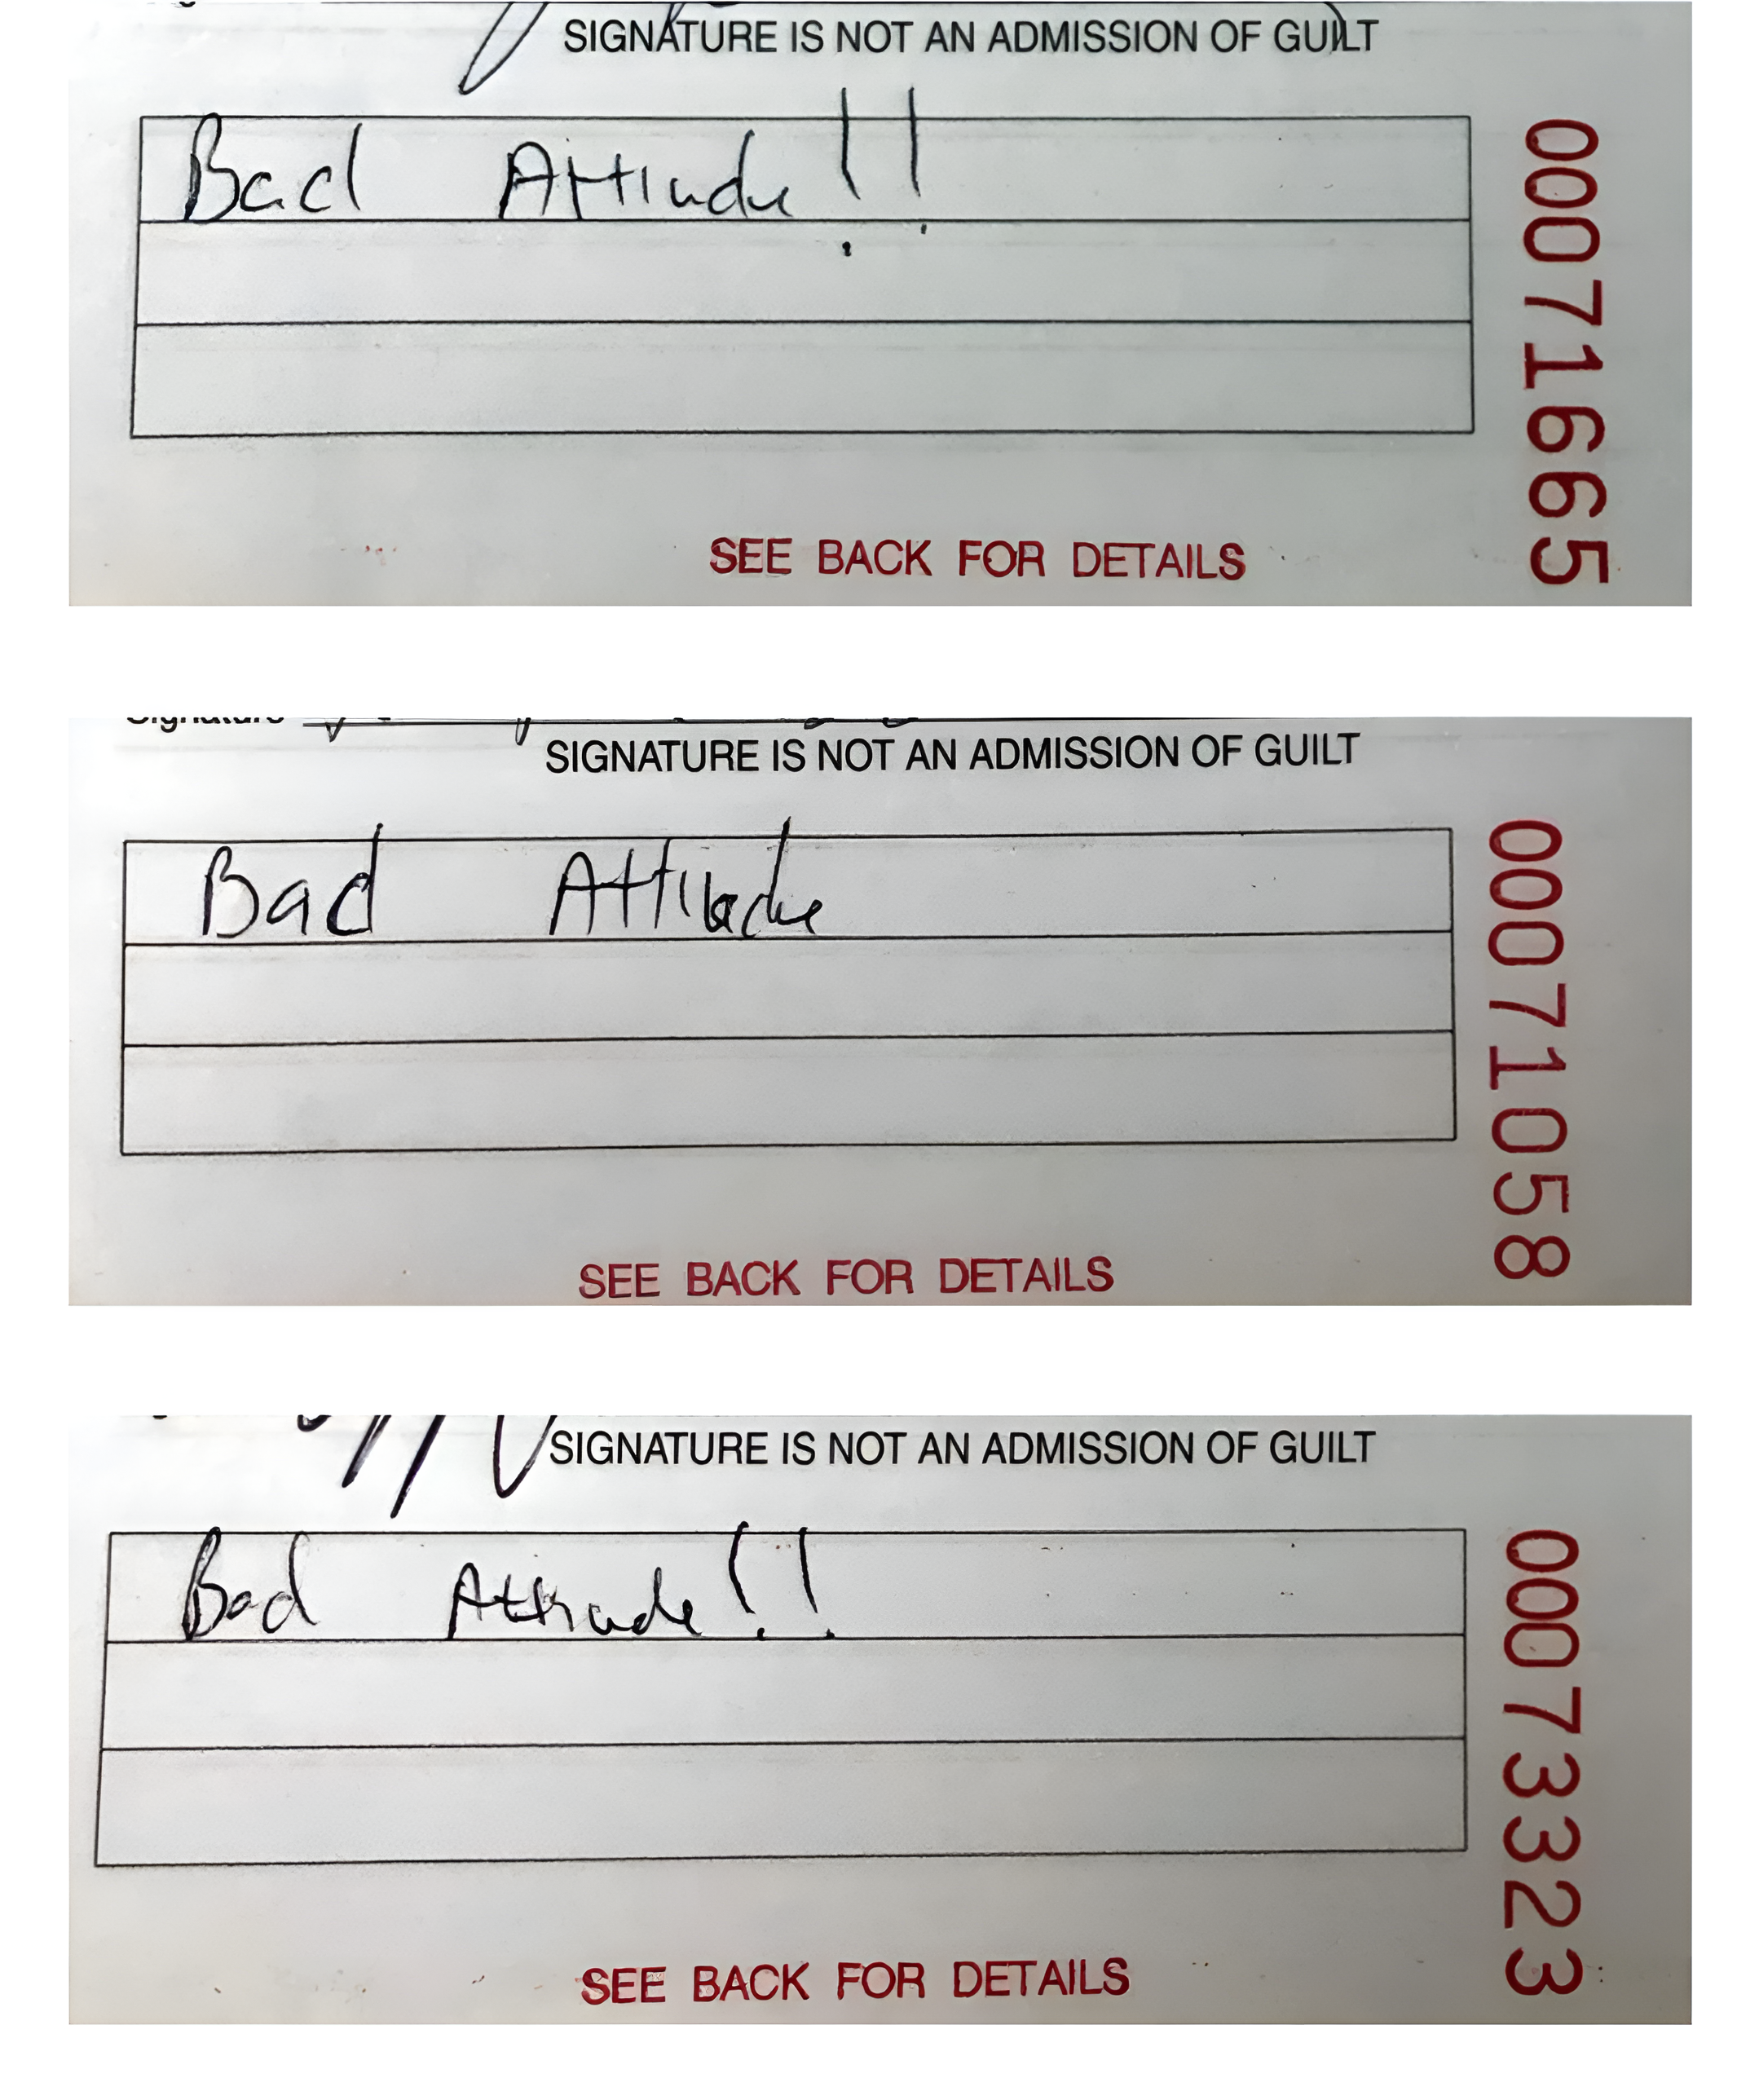 SIGNATURE IS NOT AN ADMISSION OF GUILT
Bad Attiude!!
00071665
SEE BACK FOR DETAILS
Signature
SIGNATURE IS NOT AN ADMISSION OF GUILT
Bad Attitude
00071058
SEE BACK FOR DETAILS
SIGNATURE IS NOT AN ADMISSION OF GUILT
Bad Attitude!!
00073323
SEE BACK FOR DETAILS